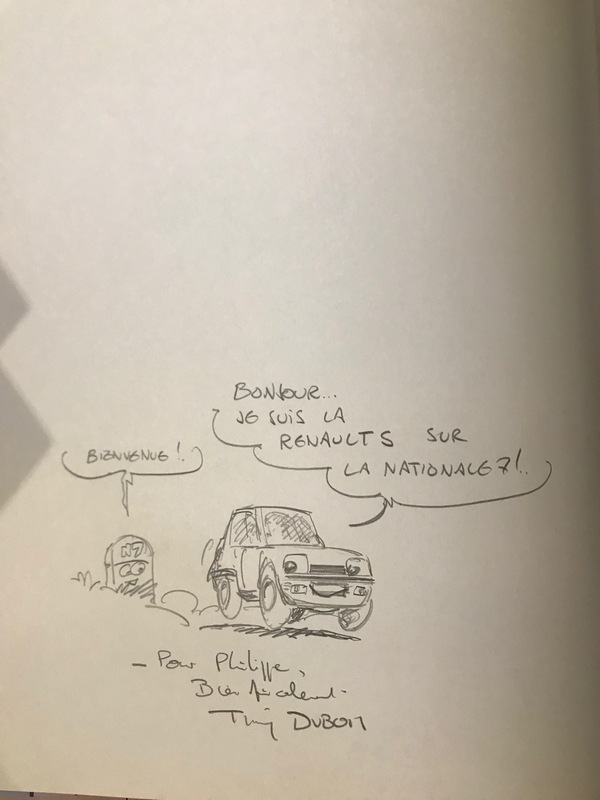 BIENVENUE !..
BONJOUR...
JE SUIS LA
RENAULT 5 SUR
LA NATIONALE 7 !..
N7
— Pour Philippe,
Bien Amicalement.
Thierry DUBOIS